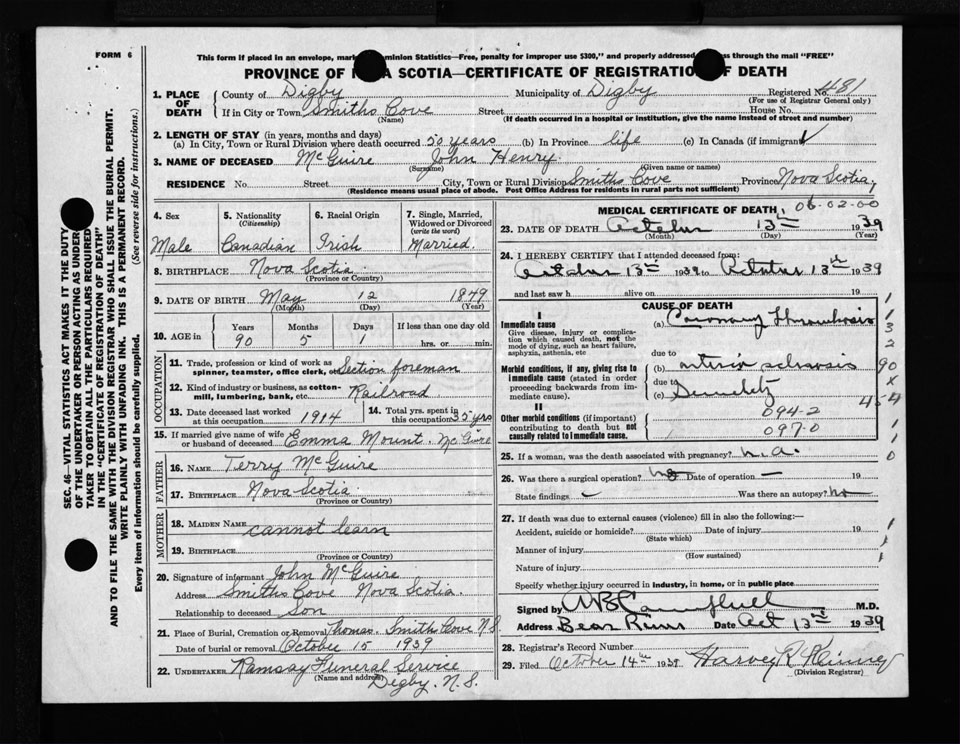 FORM 6
This form if placed in an envelope, mar ominion Statistics—Free, penalty for improper use $300," and properly addressed s through the mail "FREE"
PROVINCE OF N A SCOTIA—CERTIFICATE OF REGISTRATION OF DEATH
1. PLACE OF DEATH County of Digby Municipality of Digby Registered No. 481
(For use of Registrar General only)
If in City or Town Smiths Cove Street House No.
(Name) (If death occurred in a hospital or institution, give the name instead of street and number)
2. LENGTH OF STAY (in years, months and days)
(a) In City, Town or Rural Division where death occurred 50 years (b) In Province life (c) In Canada (if immigrant) ✓
3. NAME OF DECEASED McGuire John Henry.
(Surname) (Given name or names)
RESIDENCE No. Street City, Town or Rural Division Smiths Cove Province Nova Scotia,
(Residence means usual place of abode. Post Office Address for residents in rural parts not sufficient)
SEC. 46—VITAL STATISTICS ACT MAKES IT THE DUTY
OF THE UNDERTAKER OR PERSON ACTING AS UNDER-
TAKER TO OBTAIN ALL THE PARTICULARS REQUIRED
IN THE "CERTIFICATE OF REGISTRATION OF DEATH"
AND TO FILE THE SAME WITH THE DIVISION REGISTRAR WHO SHALL ISSUE THE BURIAL PERMIT.
WRITE PLAINLY WITH UNFADING INK. THIS IS A PERMANENT RECORD.
Every item of information should be carefully supplied. (See reverse side for instructions.)
4. Sex Male
5. Nationality (Citizenship) Canadian
6. Racial Origin Irish
7. Single, Married, Widowed or Divorced (write the word) Married.
8. BIRTHPLACE Nova Scotia
(Province or Country)
9. DATE OF BIRTH May 12 1849
(Month) (Day) (Year)
10. AGE in Years Months Days If less than one day old
90 5 1 hrs. or min.
OCCUPATION
11. Trade, profession or kind of work as spinner, teamster, office clerk, etc. Section foreman
12. Kind of industry or business, as cotton-mill, lumbering, bank, etc. Railroad
13. Date deceased last worked at this occupation 1914
14. Total yrs. spent in this occupation 35 yrs
15. If married give name of wife or husband of deceased Emma Mount. McGuire
FATHER
16. NAME Terry McGuire
17. BIRTHPLACE Nova Scotia
(Province or Country)
MOTHER
18. MAIDEN NAME cannot learn
19. BIRTHPLACE
(Province or Country)
20. Signature of informant John McGuire
Address Smiths Cove Nova Scotia.
Relationship to deceased Son
21. Place of Burial, Cremation or Removal Thomas. Smith Cove N.S.
Date of burial or removal October 15 1939
22. UNDERTAKER Ramsay Funeral Service
(Name and address) Digby. N.S.
MEDICAL CERTIFICATE OF DEATH 06-02-00
23. DATE OF DEATH October 13th 1939
(Month) (Day) (Year)
24. I HEREBY CERTIFY that I attended deceased from:
October 13th 1939 to October 13th 1939
and last saw h alive on 19
CAUSE OF DEATH
I
Immediate cause (a) Coronary thrombosis
Give disease, injury or complication which caused death, not the mode of dying, such as heart failure, asphyxia, asthenia, etc
due to
Morbid conditions, if any, giving rise to immediate cause (stated in order proceeding backwards from immediate cause). (b) arterio sclerosis
due to
(c) Senility
II
Other morbid conditions (if important) contributing to death but not causally related to immediate cause.
094-2
097.0
1
1
3
2
90
X
454
1
1
0
25. If a woman, was the death associated with pregnancy? n.a.
26. Was there a surgical operation? no Date of operation —
State findings — Was there an autopsy? no
27. If death was due to external causes (violence) fill in also the following:—
Accident, suicide or homicide? Date of injury 19
(State which)
Manner of injury
(How sustained)
Nature of injury
Specify whether injury occurred in industry, in home, or in public place
Signed by AB Campbell M.D.
Address Bear River Date Oct 13th 1939
28. Registrar's Record Number
29. Filed October 14th 1939 Harvey R
(Division Registrar)